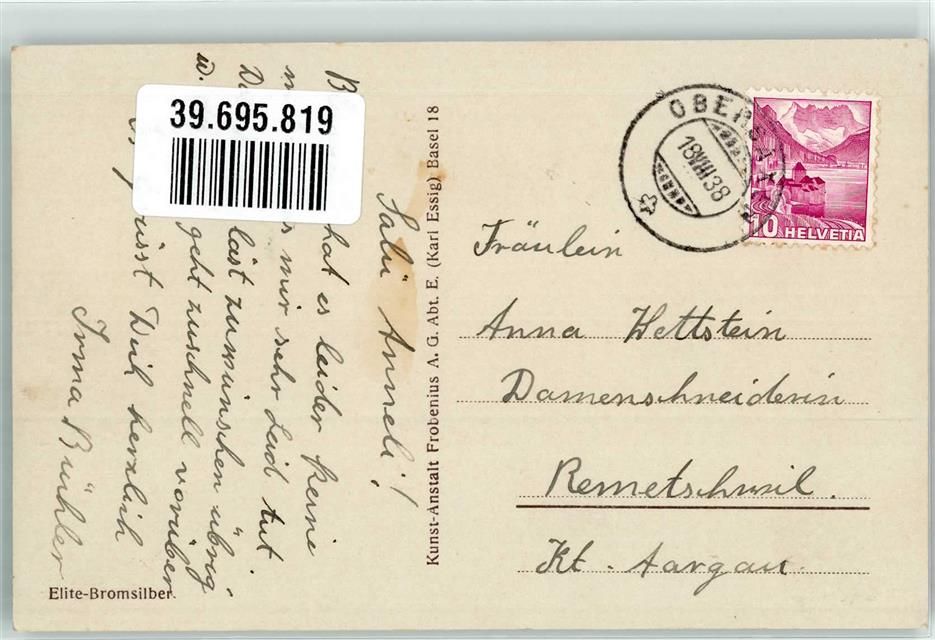 39.695.819
Salü Anneli!
hat es leider keine
mir sehr Leid tut.
lässt zu wünschen übrig
geht zu schnell vorüber
Dich herzlich
Irma Bühler
Elite-Bromsilber.
Kunst-Anstalt Frobenius A. G. Abt. E. (Karl Essig) Basel 18
18 VIII 38
10 HELVETIA
Fräulein
Anna Wettstein
Damenschneiderin
Remetschwil.
Kt. Aargau.